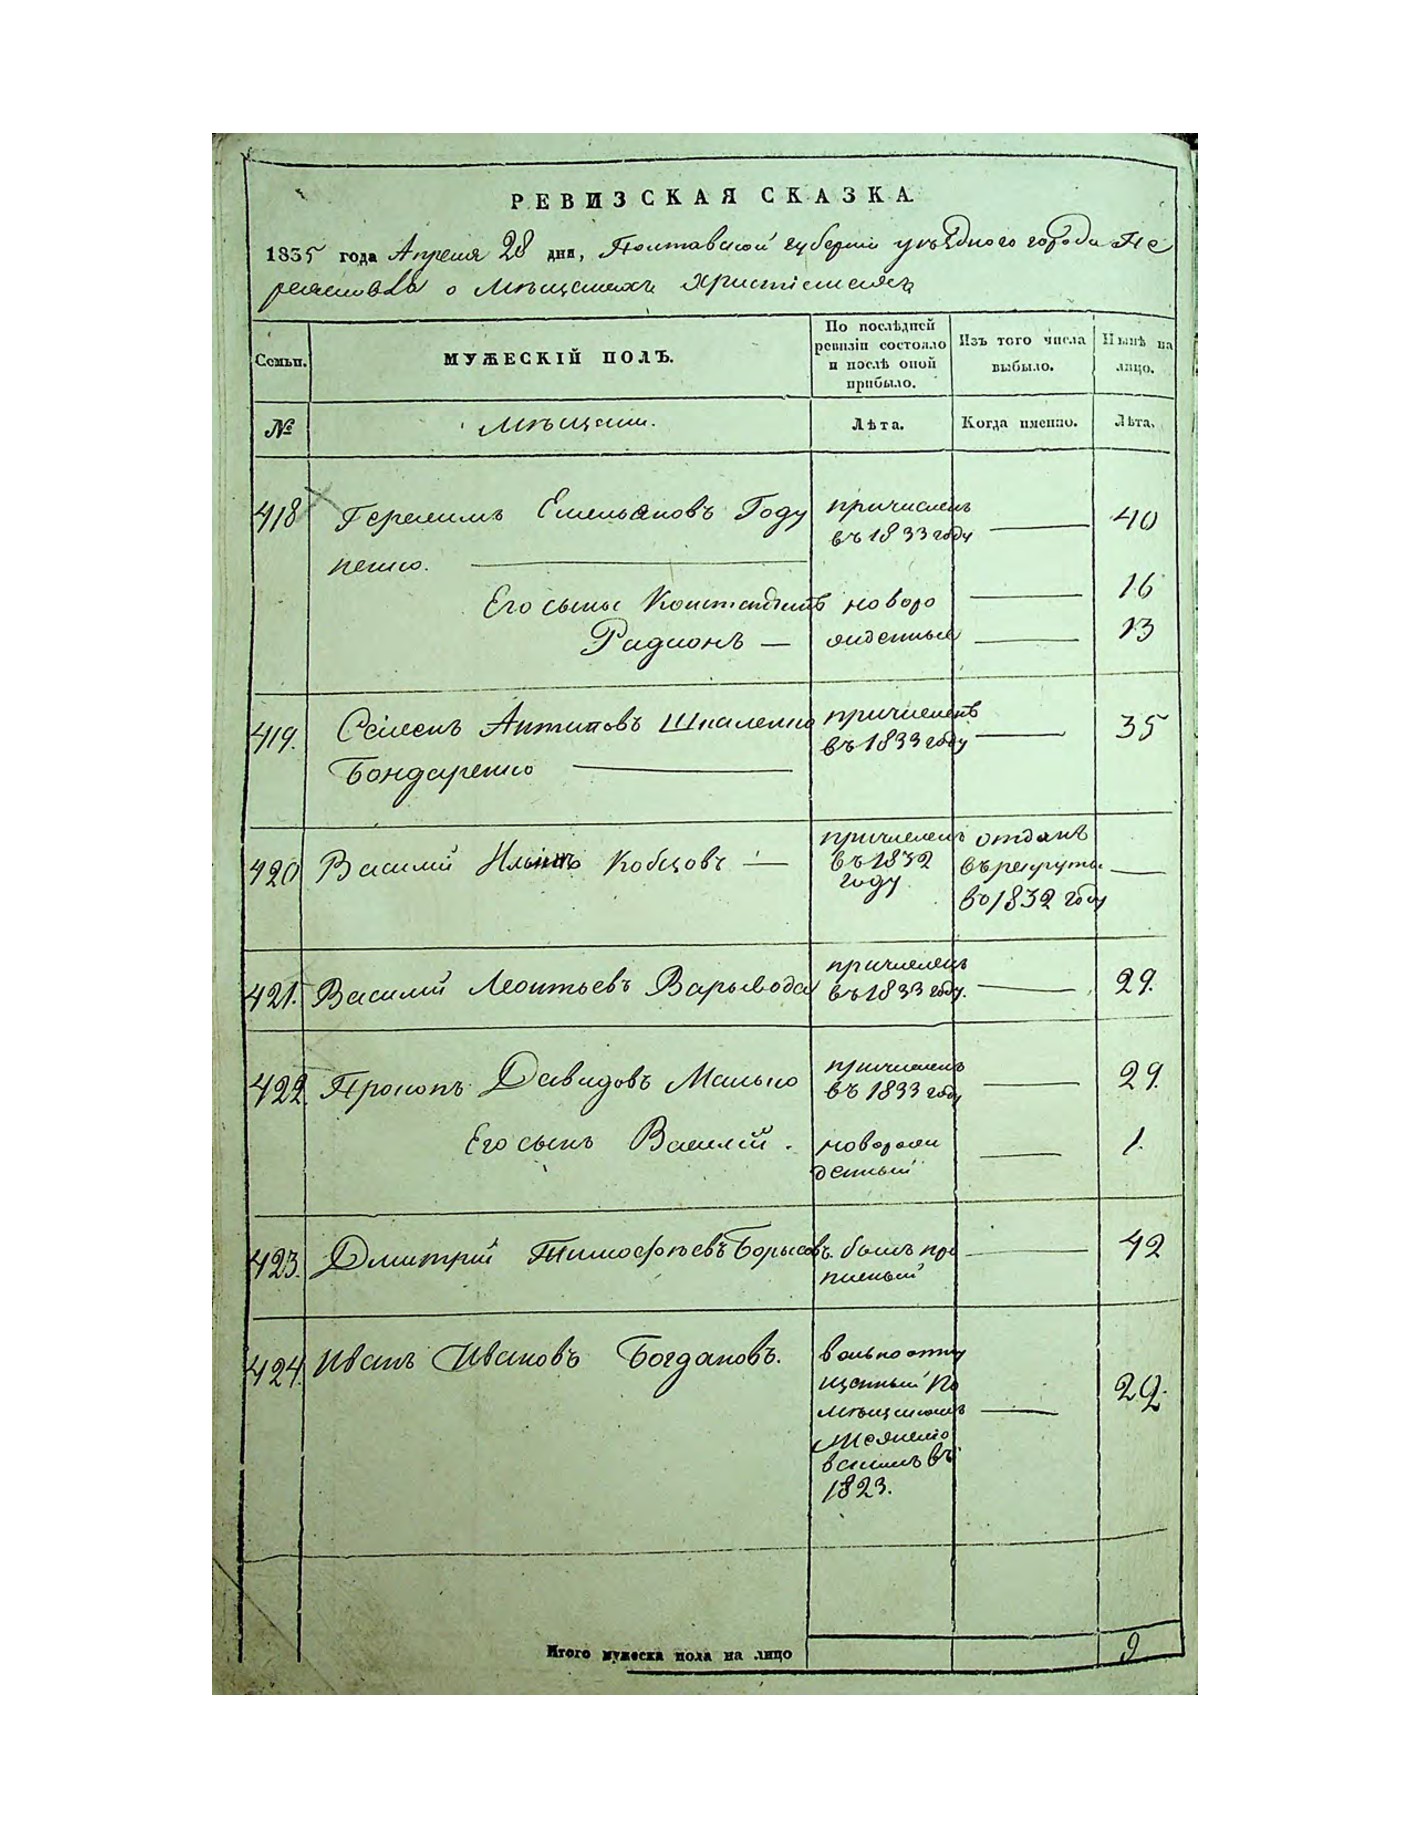 РЕВИЗСКАЯ СКАЗКА
1835 года Апреля 28 дня, Полтавской губерніи уѣзднаго города Пе
реяслова о мѣщанахъ христіанахъ
Семьи.
МУЖЕСКІЙ ПОЛЪ.
По послѣдней ревизіи состояло и послѣ оной прибыло.
Изъ того числа выбыло.
Нынѣ на лицо.
№
Мѣщани.
Лѣта.
Когда именно.
Лѣта.
418 Герасимъ Емельяновъ Году причисленъ 40
пенко. въ 1833 году
Его сыны Константинъ новоро 16
Радионъ — жденные 13
419. Семенъ Антиповъ причисленъ 35
Бондаренко въ 1833 году
420 Василий Ильинъ Кобцовъ — причисленъ отданъ
въ 1832 въ рекруты
году во 1832 году
421. Василий Леонтьевъ Варывода причисленъ 29.
въ 1833 году.
422. Прокопъ Давидовъ Манько причисленъ 29.
въ 1833 году
Его сынъ Василій. новорож 1.
денный
423. Дмитрій Тимофѣевъ Борисовъ. былъ про 42
писный
424. Иванъ Ивановъ Богдановъ. вольноотпу 29.
щенный по
мѣщикомъ
въ
1823.
Итого мужеска пола на лицо 9